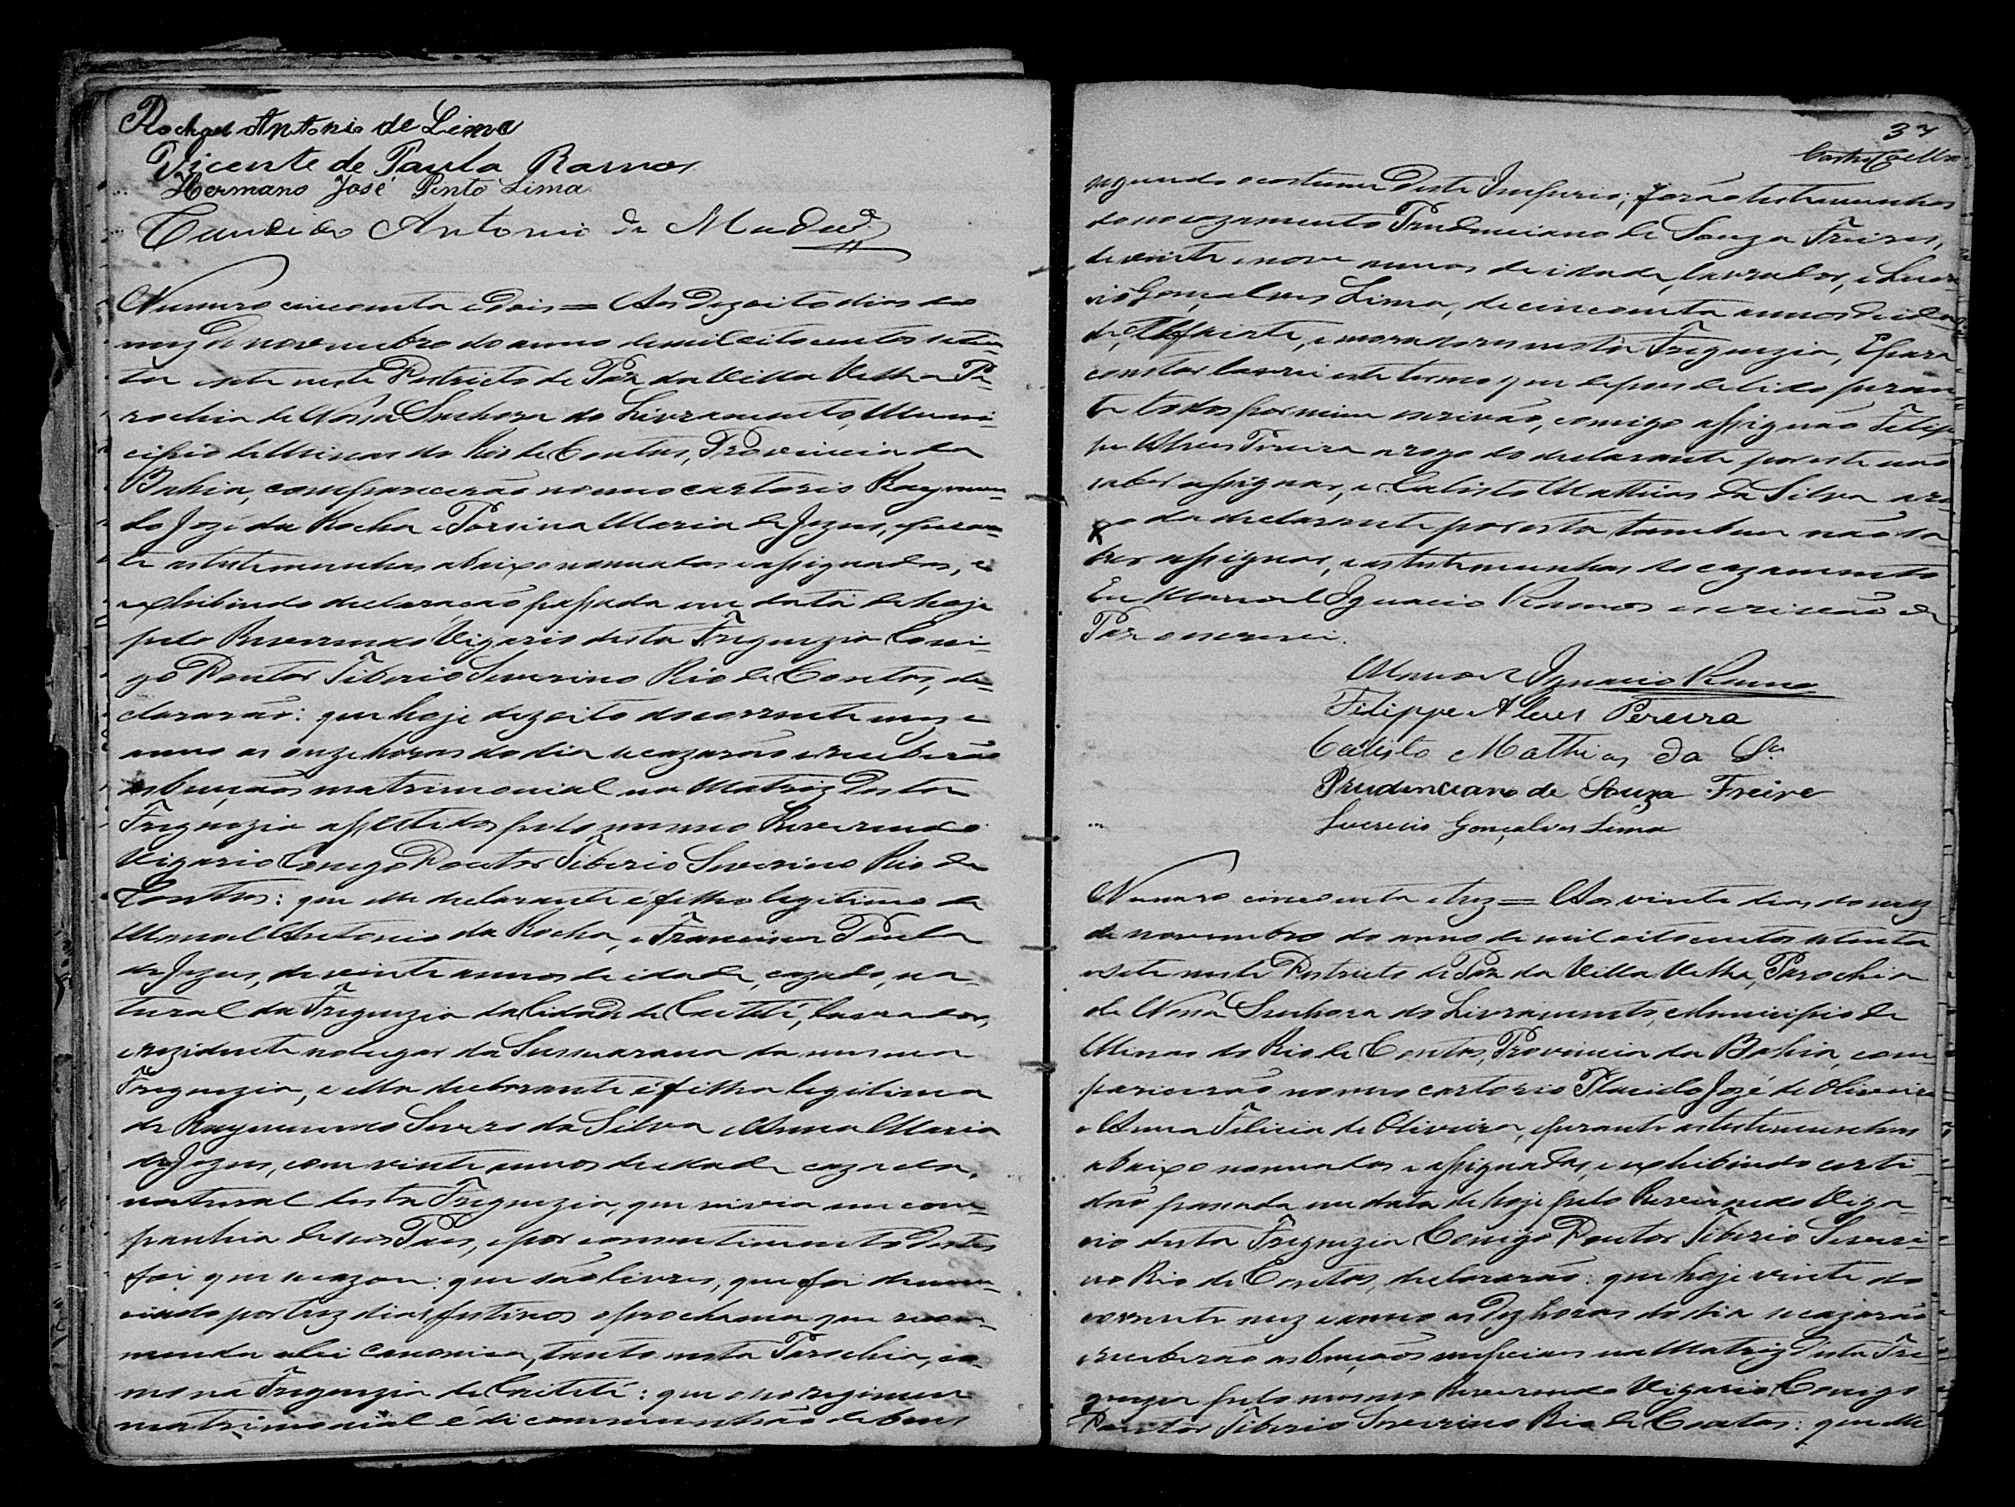 Rachael Antonio de Lima
Vicente de Paula Ramos
Hermano José Pinto Lima
Candido Antonio de
Numero cincoenta e Dois = Aos Dezoito dias do
mez de novembro do anno de mil oitocentos seten-
ta e sete neste Destricto de Paz da Villa Velha Pa-
rochia de Nossa Senhora do Livramento, Muni-
cipio de Minas do Rio de Contas, Provincia da
Bahia, comparecerão no meo cartorio Raymun-
do Joze da Rocha e Porsina Maria de Jezus, e peran-
te as testemunhas abaixo nomeadas e assignadas, e
exhibindo declaração passada em data de hoje
pelo Reverendo Vigario desta Freguezia Coni-
go Doutor Tiberio Severino Rio de Contas, de-
clararão: que hoje dezoito do corrente mez e
anno as onze horas do dia se cazarão e receberão
as bençãos matrimonial na Matriz desta
Freguezia assestidos pelo mesmo Reverendo
Vigario Conigo Doutor Tiberio Severino Rio de
Contas: que elle declarante é filho legitimo de
Manoel Antonio da Rocha, e Francisca Paula
de Jezus, de vinte annos de idade, cazado, na-
tural da Freguezia da Cidade de Caetité, lavrador,
e rezidente no lugar da Sussuarana da mesma
Freguezia, e ella declarante é filha legitima
de Raymundo Severo da Silva e Anna Maria
de Jezus, com vinte annos de idade cazada,
natural desta Freguezia, que vivia em com-
panhia de seos Pais, e por consentimento destes
foi que se cazou: que são livres, que foi denun-
ciado por trez dias festivos e prochama que recom-
menda a lei canonica, tanto nesta Parochia, co-
mo na Freguezia de Caitité: que o no regimen
matrimonial é de communhão de bens
37
Castro Coelho
segundo o costume deste Imperio; forão testemunhas
do no cazamento Prudenciano de Souza Freires,
de vinte e nove annos de idade, lavrador, e Lucre-
cio Gonçalves Lima, de cincoenta annos de ida-
de, e moradores nesta Freguezia. E para
constar lavrei este termo que depois de lido peran-
te todos por mim escrivão, comigo assignão Felip-
pe Alves Pereira a rogo do declarante por este não
saber assignar, e Calisto Mathias da Silva a ro-
go da declarante por esta tambem não sa-
ber assignar, e as testemunhas do cazamento
Eu Manoel Ignacio Ramos escrivão de
Paz o escrevi.
Manoel Ignacio Ramos
Filippe Alves Pereira
Calisto Mathias da Sa
Prudenciano de Souza Freire
Lucrecio Gonçalves Lima
Numero cincoenta e trez = Aos vinte dias do mez
de novembro do anno de mil oitocentos setenta
e sete neste Destricto de Paz da Villa Velha, Parochia
de Nossa Senhora do Livramento, Municipio de
Minas do Rio de Contas, Provincia da Bahia, com
parecerão no meo cartorio Placido José de Oliveira
e Anna Felicia de Oliveira, e perante as testemunhas
abaixo nomeadas e assignadas, e exhibindo certi-
dão passada em data de hoje pelo Reverendo Viga-
rio desta Freguezia Conigo Doutor Tiberio Severi-
no Rio de Contas, declararão: que hoje vinte do
corrente mez e anno as Dez horas do dia se cazarão
e receberão as bençãos nupciaes na Matriz desta Fre-
guezia pelo mesmo Reverendo Vigario Conigo
Doutor Tiberio Severino Rio de Contas: que elle